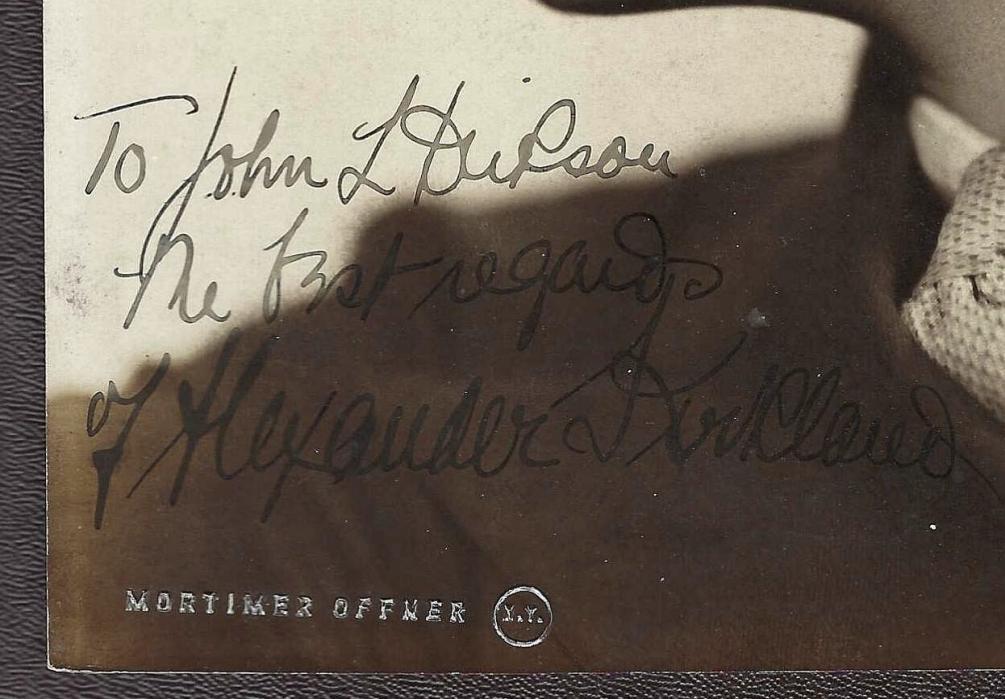 To John L Dickson
The best regards
of Alexander Kirkland
MORTIMER OFFNER N.Y.